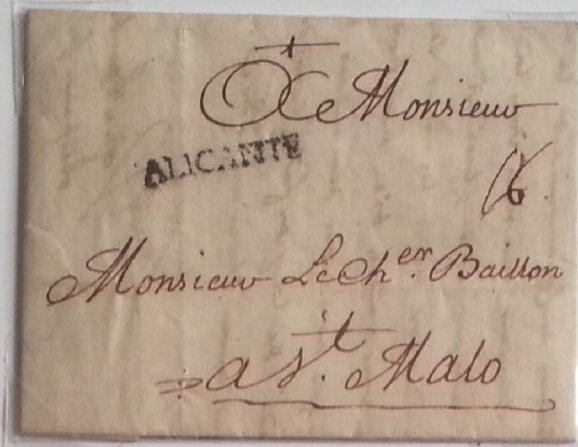 A Monsieur
ALICANTE
16
Monsieur Le Ch.er Baillon
a St. Malo